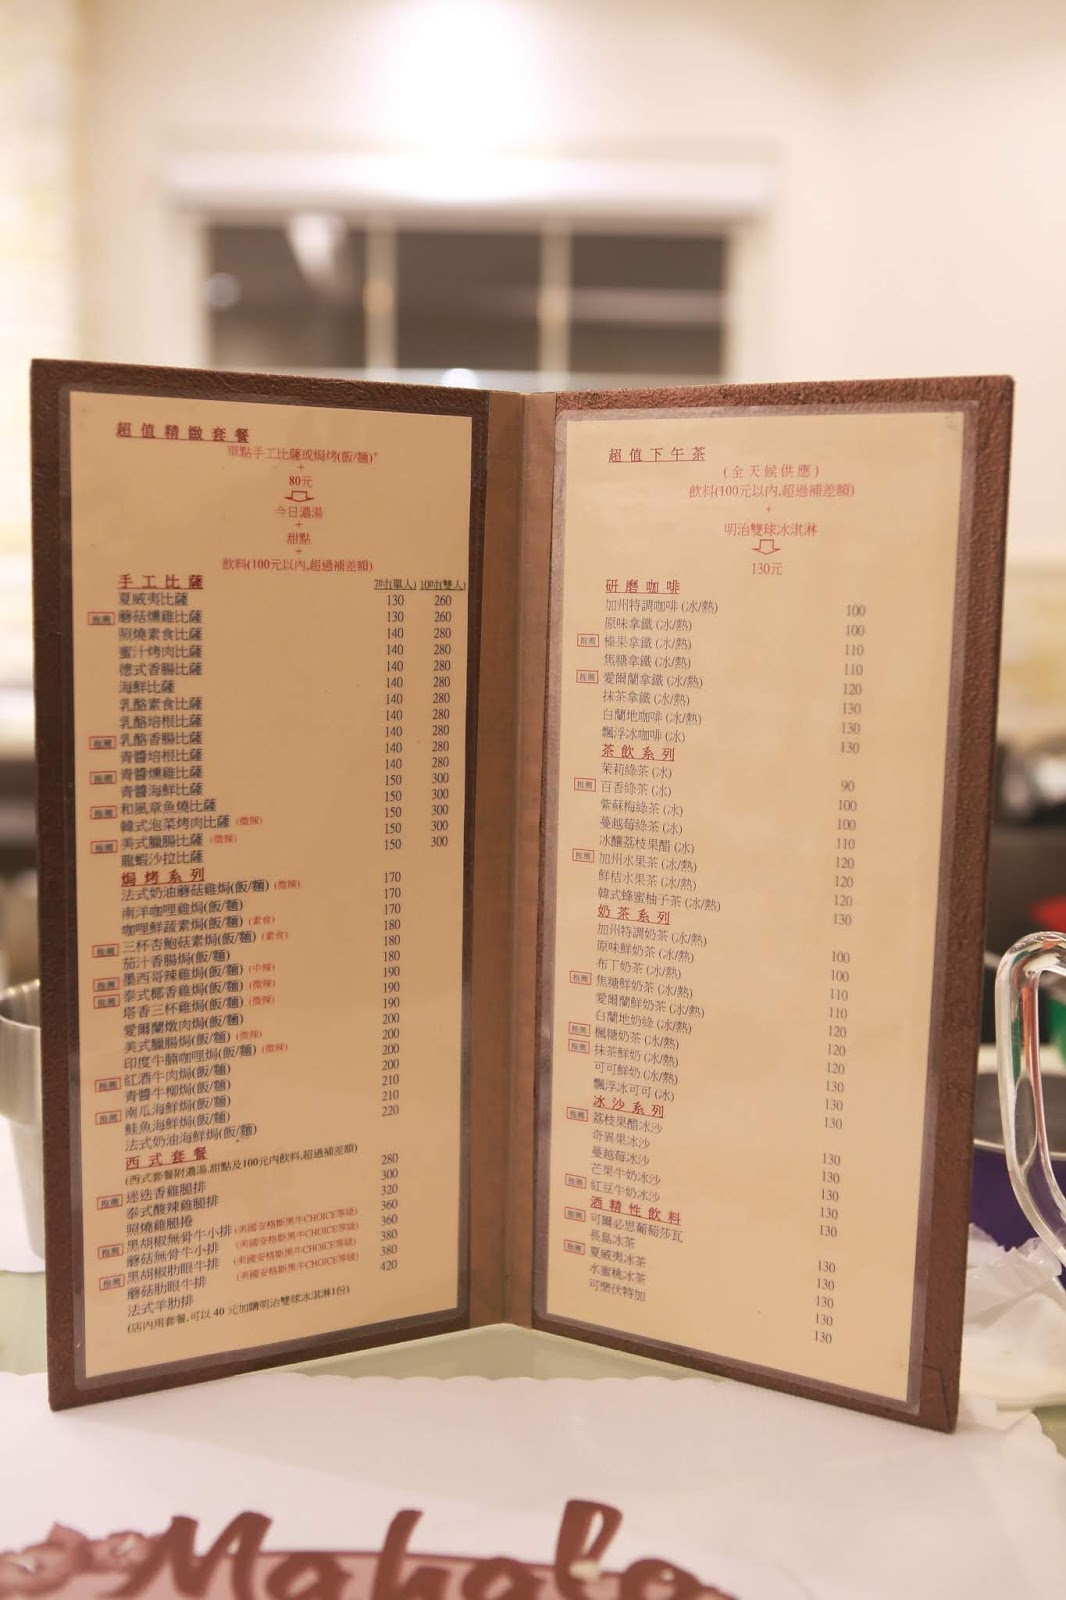 超值精緻套餐
單點手工比薩或焗烤(飯/麵)"
+
80元
今日濃湯
+
甜點
+
飲料(100元以內,超過補差額)
手工比薩 7吋(單人) 10吋(雙人)
夏威夷比薩 130 260
推薦 蘑菇燻雞比薩 130 260
照燒素食比薩 140 280
蜜汁烤肉比薩 140 280
德式香腸比薩 140 280
海鮮比薩 140 280
乳酪素食比薩 140 280
乳酪培根比薩 140 280
推薦 乳酪香腸比薩 140 280
青醬培根比薩 140 280
推薦 青醬燻雞比薩 140 280
青醬海鮮比薩 150 300
推薦 和風章魚燒比薩 150 300
韓式泡菜烤肉比薩 (微辣) 150 300
推薦 美式臘腸比薩 (微辣) 150 300
龍蝦沙拉比薩 150 300
焗烤系列
法式奶油蘑菇雞焗(飯/麵) (微辣) 170
南洋咖哩雞焗(飯/麵) 170
咖哩鮮蔬素焗(飯/麵) (素食) 170
推薦 三杯杏鮑菇素焗(飯/麵) (素食) 180
茄汁香腸焗(飯/麵) 180
推薦 墨西哥辣雞焗(飯/麵) (中辣) 180
推薦 泰式椰香雞焗(飯/麵) (微辣) 190
塔香三杯雞焗(飯/麵) (微辣) 190
愛爾蘭燉肉焗(飯/麵) 190
美式臘腸焗(飯/麵) (微辣) 200
印度牛腩咖哩焗(飯/麵) (微辣) 200
推薦 紅酒牛肉焗(飯/麵) 200
青醬牛柳焗(飯/麵) 200
推薦 南瓜海鮮焗(飯/麵) 210
鮭魚海鮮焗(飯/麵) 210
法式奶油海鮮焗(飯/麵) 220
西式套餐
(西式套餐附濃湯,甜點及100元內飲料,超過補差額)
推薦 迷迭香雞腿排 280
泰式酸辣雞腿排 300
照燒雞腿捲 320
推薦 黑胡椒無骨牛小排 (美國安格斯黑牛CHOICE等級) 360
蘑菇無骨牛小排 (美國安格斯黑牛CHOICE等級) 360
推薦 黑胡椒肋眼牛排 (美國安格斯黑牛CHOICE等級) 380
蘑菇肋眼牛排 (美國安格斯黑牛CHOICE等級) 380
法式羊肋排 420
(店內用套餐,可以 40 元加購明治雙球冰淇淋1份)
超值下午茶
(全天候供應)
飲料(100元以內,超過補差額)
+
明治雙球冰淇淋
130元
研磨咖啡
加州特調咖啡 (冰/熱) 100
原味拿鐵 (冰/熱) 100
推薦 榛果拿鐵 (冰/熱) 110
焦糖拿鐵 (冰/熱) 110
推薦 愛爾蘭拿鐵 (冰/熱) 120
抹茶拿鐵 (冰/熱) 130
白蘭地咖啡 (冰/熱) 130
飄浮冰咖啡 (冰) 130
茶飲系列
茉莉綠茶 (冰) 90
推薦 百香綠茶 (冰) 100
紫蘇梅綠茶 (冰) 100
蔓越莓綠茶 (冰) 110
冰釀荔枝果醋 (冰) 120
推薦 加州水果茶 (冰/熱) 120
鮮桔水果茶 (冰/熱) 120
韓式蜂蜜柚子茶 (冰/熱) 130
奶茶系列
加州特調奶茶 (冰/熱) 100
原味鮮奶茶 (冰/熱) 100
布丁奶茶 (冰/熱) 110
推薦 焦糖鮮奶茶 (冰/熱) 110
愛爾蘭鮮奶茶 (冰/熱) 120
白蘭地奶綠 (冰/熱) 120
推薦 楓糖奶茶 (冰/熱) 120
推薦 抹茶鮮奶 (冰/熱) 130
可可鮮奶 (冰/熱) 130
飄浮冰可可 (冰) 130
冰沙系列
推薦 荔枝果醋冰沙 130
奇異果冰沙 130
蔓越莓冰沙 130
芒果牛奶冰沙 130
推薦 紅豆牛奶冰沙 130
酒精性飲料
推薦 可爾必思葡萄莎瓦 130
長島冰茶 130
推薦 夏威夷冰茶 130
水蜜桃冰茶 130
可樂伏特加 130
Mahalo